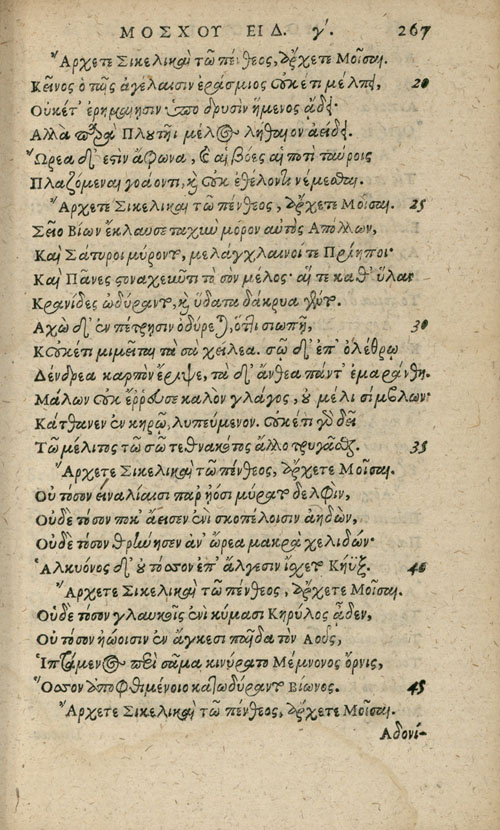 ΜΟΣΧΟΥ ΕΙΔ. γ΄. 267
Ἄρχετε Σικελικαὶ τῶ πένθεος, ἄρχετε Μοῖσαι.
Κεῖνος ὁ ταῖς ἀγέλαισιν ἐράσμιος οὐκέτι μέλπει, 20
Οὐκέτ' ἐρημαίῃσιν ὑπὸ δρυσὶν ἥμενος ᾄδει·
Ἀλλὰ παρὰ Πλουτῆϊ μέλος ληθαῖον ἀείδει.
Ὤρεα δ' ἐστὶν ἄφωνα, καὶ αἱ βόες αἱ ποτὶ ταύροις
Πλαζόμεναι γοάοντι, καὶ οὐκ ἐθέλοντι νέμεσθαι.
Ἄρχετε Σικελικαὶ τῶ πένθεος, ἄρχετε Μοῖσαι. 25
Σεῖο Βίων ἔκλαυσε ταχὺν μόρον αὐτὸς Ἀπόλλων,
Καὶ Σάτυροι μύροντο, μελάγχλαινοί τε Πρίηποι·
Καὶ Πᾶνες στοναχεῦντι τὸ σὸν μέλος· αἵ τε καθ' ὕλαν
Κρανίδες ὠδύραντο, καὶ ὕδατα δάκρυα γέντο.
Ἀχὼ δ' ἐν πέτρῃσιν ὀδύρεται, ὅττι σιωπῇ, 30
Κοὐκέτι μιμεῖται τὰ σὰ χείλεα. σῷ δ' ἐπ' ὀλέθρῳ
Δένδρεα καρπὸν ἔριψε, τὰ δ' ἄνθεα πάντ' ἐμαράνθη.
Μάλων οὐκ ἔῤῥευσε καλὸν γλάγος, οὐ μέλι σίμβλων·
Κάτθανεν ἐν κηρῷ, λυπεύμενον. οὐκέτι γὰρ δεῖ
Τῶ μέλιτος τῶ σῶ τεθνακότος ἄλλο τρυγᾶσθαι. 35
Ἄρχετε Σικελικαὶ τῶ πένθεος, ἄρχετε Μοῖσαι.
Οὐ τόσον εἰναλίαισι παρ' ᾐόσι μύρατο δελφὶν,
Οὐδὲ τόσον ποκ' ἄεισεν ἐνὶ σκοπέλοισιν ἀηδὼν,
Οὐδὲ τόσον θρήνησεν ἀν' ὤρεα μακρὰ χελιδών·
Ἀλκυόνος δ' οὐ τόσσον ἐπ' ἄλγεσιν ἴσχετο Κήϋξ. 40
Ἄρχετε Σικελικαὶ τῶ πένθεος, ἄρχετε Μοῖσαι.
Οὐδὲ τόσον γλαυκοῖς ἐνὶ κύμασι Κηρύλος ᾇδεν,
Οὐ τόσον ἠῴοισιν ἐν ἄγκεσι παῖδα τὸν Ἀοῦς,
Ἱπτάμενος περὶ σᾶμα κινύρατο Μέμνονος ὄρνις,
Ὅσσον ἀποφθιμένοιο κατωδύραντο Βίωνος. 45
Ἄρχετε Σικελικαὶ τῶ πένθεος, ἄρχετε Μοῖσαι.
Ἀδονί-